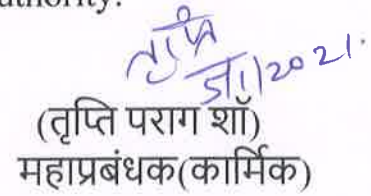 authority.
तृप्ति
शॉ/2021.
(तृप्ति पराग शॉ)
महाप्रबंधक(कार्मिक)